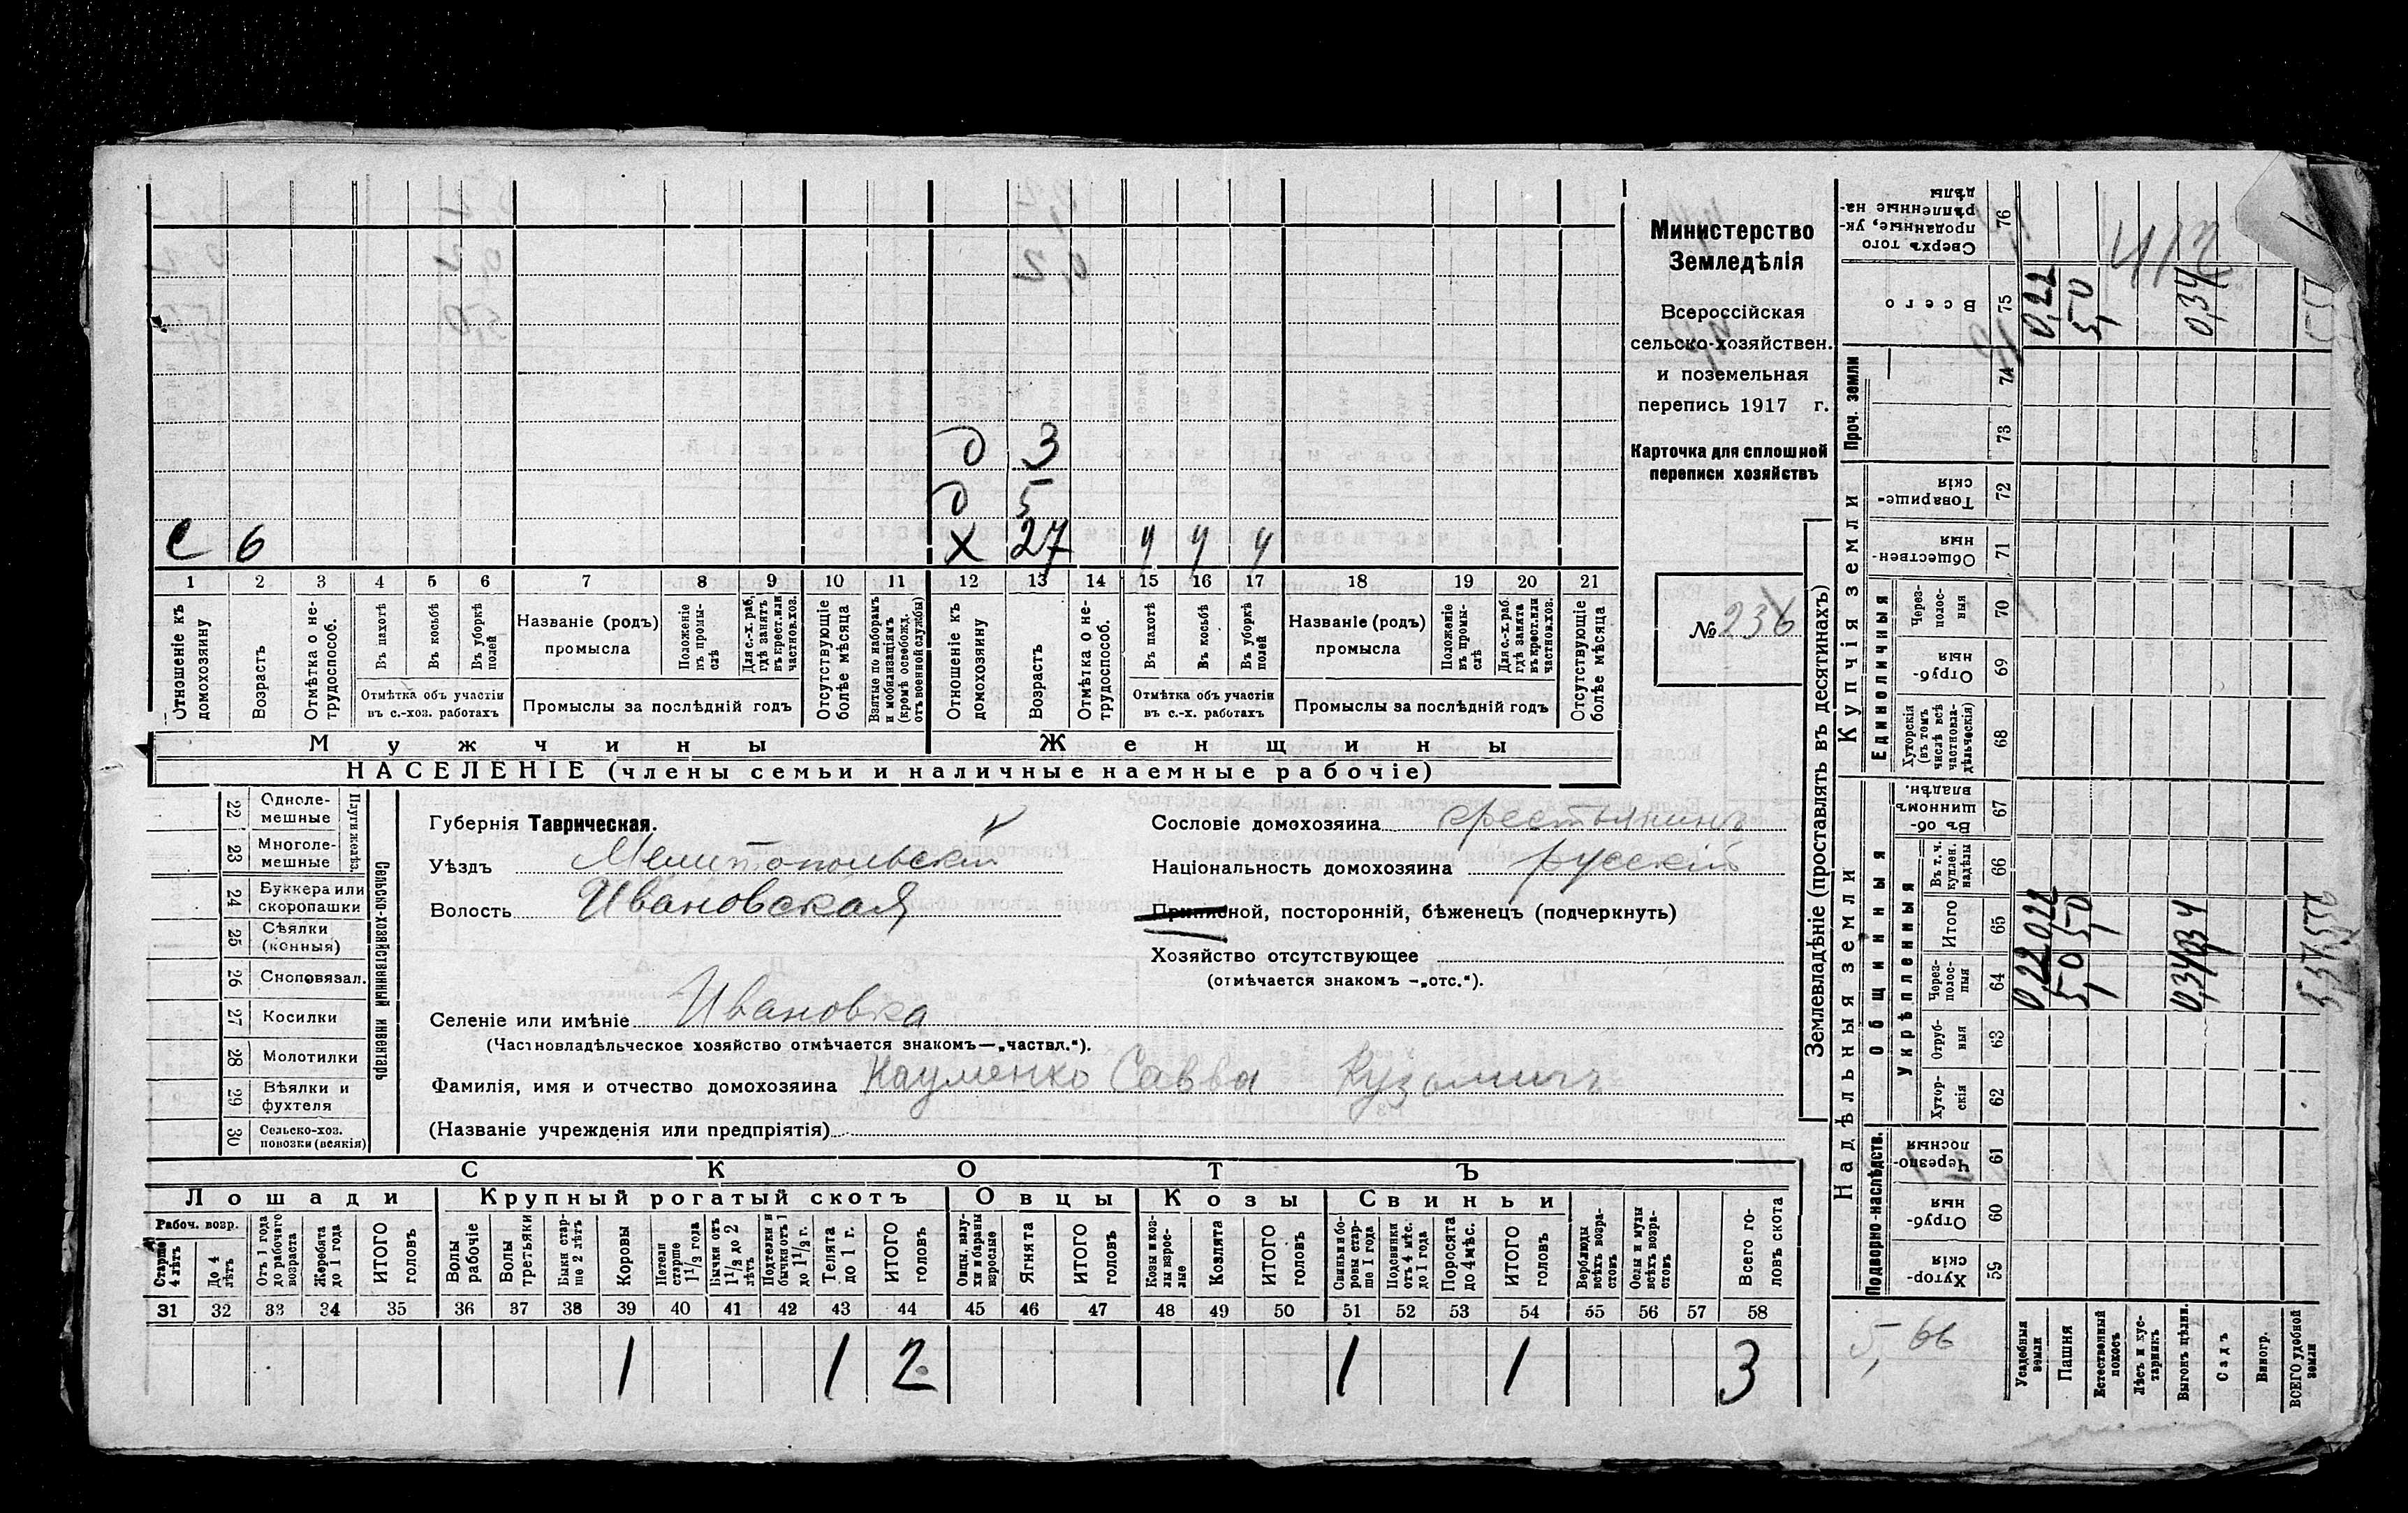 Министерство
Земледѣлія
Всероссійская
сельско-хозяйствен.
и поземельная
перепись 1917 г.
Карточка для сплошной
переписи хозяйствъ
№ 236
д 3
д 5
с 6 х 27 ч ч ч
1 2 3 4 5 6 7 8 9 10 11 12 13 14 15 16 17 18 19 20 21
Отношеніе къ домохозяину
Возрастъ
Отмѣтка о нетрудоспособ.
Въ пахотѣ
Въ косьбѣ
Въ уборкѣ полей
Отмѣтка объ участіи въ с.-хоз. работахъ
Названіе (родъ) промысла
Положеніе въ промыслѣ
Для с.-х. раб, гдѣ занятъ въ крест. или частнов. хоз.
Промыслы за послѣдній годъ
Отсутствующіе болѣе мѣсяца
Взятые по наборамъ и мобилизаціямъ (кромѣ освобожд. отъ военной службы)
Отношеніе къ домохозяину
Возрастъ
Отмѣтка о нетрудоспособ.
Въ пахотѣ
Въ косьбѣ
Въ уборкѣ полей
Отмѣтка объ участіи въ с.-х. работахъ
Названіе (родъ) промысла
Положеніе въ промыслѣ
Для с.-х. раб. гдѣ занята въ крест. или частнов. хоз.
Промыслы за послѣдній годъ
Отсутствующіе болѣе мѣсяца
Мужчины Женщины
НАСЕЛЕНІЕ (члены семьи и наличные наемные рабочіе)
22 Однолемешные
23 Многолемешные
Плуги желѣз.
24 Буккера или скоропашки
25 Сѣялки (конныя)
26 Сноповязал.
27 Косилки
28 Молотилки
29 Вѣялки и фухтеля
30 Сельско-хоз. повозки (всякія)
Сельско-хозяйственный инвентарь
Губернія Таврическая.
Уѣздъ Мелитопольскій
Волость Ивановская
Селеніе или имѣніе Ивановка
(Частновладѣльческое хозяйство отмѣчается знакомъ—„частвл.“).
Фамилія, имя и отчество домохозяина Науменко Савва Кузьмичъ
(Названіе учрежденія или предпріятія)
Сословіе домохозяина крестьянинъ
Національность домохозяина русскій
Приписной, посторонній, бѣженецъ (подчеркнуть)
Хозяйство отсутствующее
(отмѣчается знакомъ -„отс.“).
СКОТЪ
Лошади Крупный рогатый скотъ Овцы Козы Свиньи
Рабоч. возр.
Старше 4 лѣтъ
До 4 лѣтъ
Отъ 1 года до рабочаго возраста
Жеребята до 1 года
ИТОГО головъ
Волы рабочіе
Волы третьяки
Быки старше 2 лѣтъ
Коровы
Нетели старше 1 1/2 года
Бычки отъ 1 1/2 до 2 лѣтъ
Подтелки и бычки отъ 1 до 1 1/2 г.
Телята до 1 г.
ИТОГО головъ
Овцы, валухи и бараны взрослые
Ягнята
ИТОГО головъ
Козы и козлы взрослые
Козлята
ИТОГО головъ
Свиньи и боровы старше 1 года
Подсвинки отъ 4 мѣс. до 1 года
Поросята до 4 мѣс.
ИТОГО головъ
Верблюды всѣхъ возрастовъ
Ослы и мулы всѣхъ возрастовъ
Всего головъ скота
31 32 33 34 35 36 37 38 39 40 41 42 43 44 45 46 47 48 49 50 51 52 53 54 55 56 57 58
1 1 2 1 1 3
Землевладѣніе (проставлять въ десятинахъ)
Надѣльныя земли Купчія земли Проч. земли
Подворно-наслѣдств.
Общинныя
Укрѣпленныя
Единоличныя
Хуторскія 59
Отрубныя 60
Черезполосныя 61
Хуторскія 62
Отрубныя 63
Черезполосныя 64
Итого 65
Въ т. ч. куплен. надѣлы 66
Въ общинномъ владѣн. 67
Хуторскія (въ томъ числѣ всѣ частновладѣльческія) 68
Отрубныя 69
Черезполосныя 70
Общественныя 71
Товарищескія 72
73
74
Всего 75
Сверхъ того проданные, укрѣпленные надѣлы 76
Усадебныя земли 0,22 0,22 0,22
Пашня 5,0 5,0 5,0
Естественный покосъ
Лѣсъ и кустарникъ
Выгонъ цѣлин. 0,34 0,34 0,34
Садъ
Виногр.
ВСЕГО удобной земли
5,66